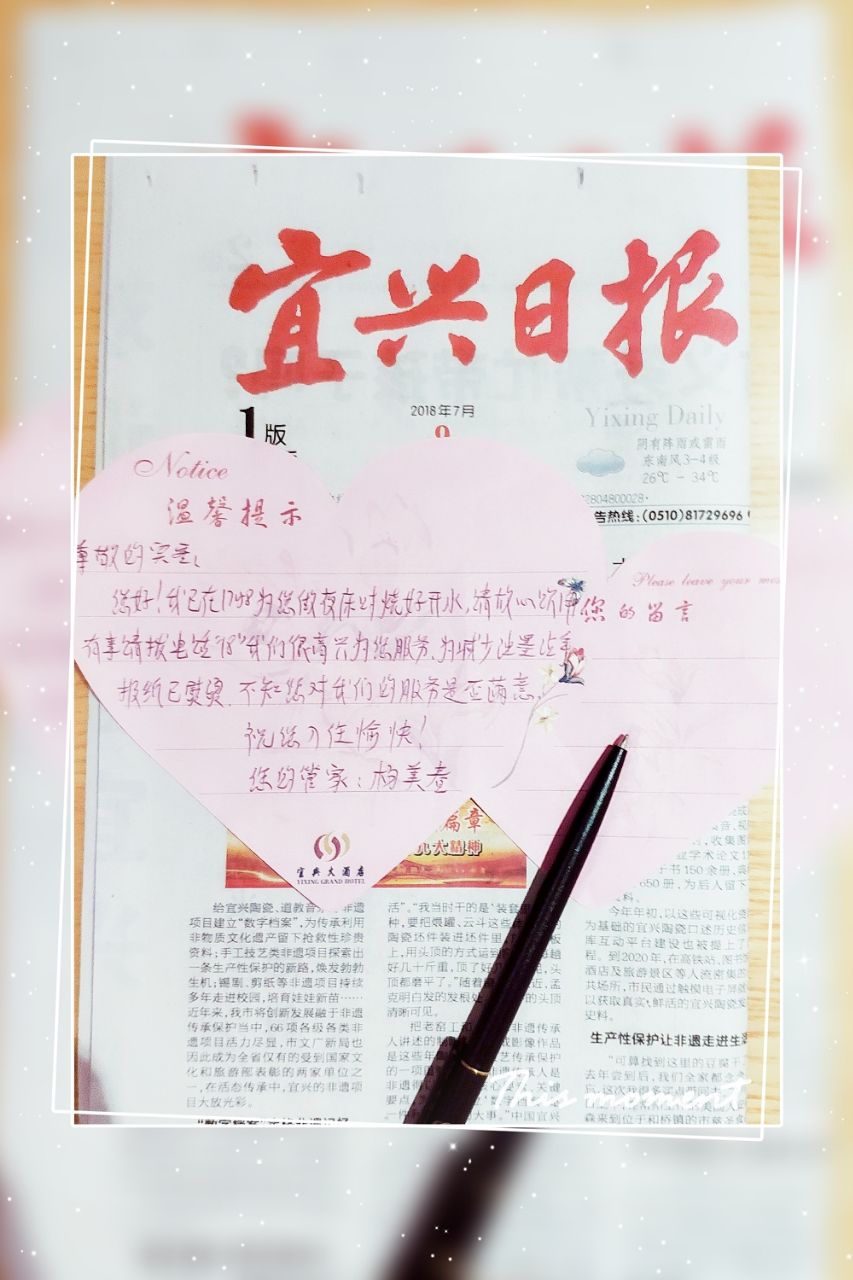 宜兴日报
1版
2018年7月
9
Yixing Daily
阴有阵雨或雷雨
东南风3-4级
26℃-34℃
02804800028·
告热线:(0510)81729696
Notice
温馨提示
尊敬的宾客:
您好!我已在1798为您做夜床时烧好开水,请放心饮用
有事请拨电话"78"我们很高兴为您服务.为减少油墨沾手
报纸已熨烫.不知您对我们的服务是否满意.
祝您入住愉快!
您的管家:杨美春
宜兴大酒店
YIXING GRAND HOTEL
Please leave your mes
您的留言
篇章
九大精神
给宜兴陶瓷、道教音乐等非遗
项目建立"数字档案",为传承利用
非物质文化遗产留下抢救性珍贵
资料;手工技艺类非遗项目探索出
一条生产性保护的新路,焕发勃勃
生机;锡剧、剪纸等非遗项目持续
多年走进校园,培育娃娃新苗……
近年来,我市将创新发展融于非遗
传承保护当中,66项各级各类非
遗项目活力尽显,市文广新局也
因此成为全省仅有的受到国家文
化和旅游部表彰的两家单位之
一,在活态传承中,宜兴的非遗项
目大放光彩。
活"。"我当时干的是'装套
种,要把煨罐、云斗这些
陶瓷坯件装进坯件里
上,用头顶的方式运到
好几十斤重,顶了好几
头顶都磨平了。"随着
近,孟
克明白发的发根处
的头顶
清晰可见。
把老窑工和
非遗传承
人讲述的制
成影像作品
是这些年
艺传承保护
的一项重
承人是
非遗得
核心
关键
要点
大事。"中国宜兴
收集图
学术论文1
书150余册,
650册,为后人留下
料。
今年年初,以这些可视化资
为基础的宜兴陶瓷口述历史
库互动平台建设也被提上了
程。到2020年,在高铁站、图
酒店及旅游景区等人流密集的
共场所,市民通过触摸电子屏
以获取真实、鲜活的宜兴陶瓷发
史料。
生产性保护让非遗走进生
"可算找到这里的豆腐干
去年尝到后,我们全家都念念
忘,这次我很多
森来到位于和桥镇的市慈
This moment